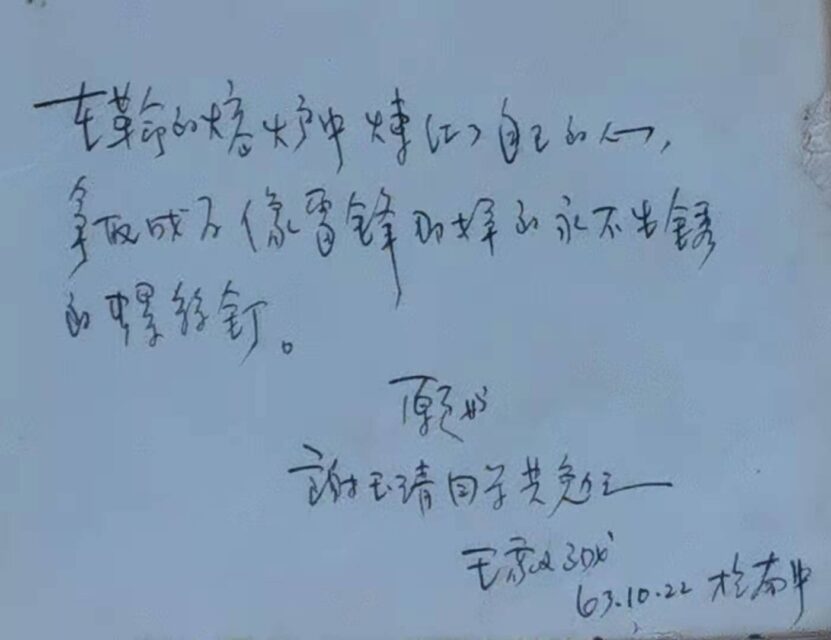 在革命的熔炉中炼红自己的心,
争取成为像雷锋那样的永不生锈
的螺丝钉。
愿与
谢玉清同学共勉之
63.10.22 于南中